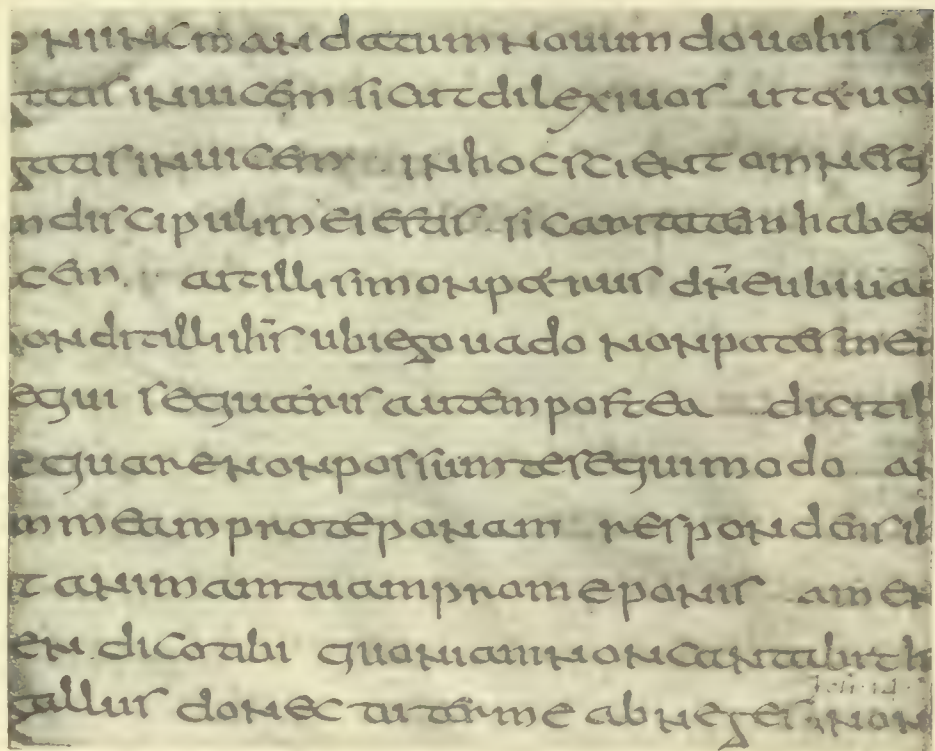 o nunc mandatum nouum do uobis u
gatis inuicem sicut dilexi uos ut et uo
gatis inuicem . in hoc scient omnes q
m discipuli mei estis . si caritatem habea
cem . ait illi simon petrus dn̄e ubi ua
ondit illi ih̄s ubi ego uado non potes me
equi sequeris autem postea dicit il
e quare non possum te sequi modo an
m meam pro te ponam respondens ih
t animam tuam pro me ponis amen
en dico tibi quoniam non cantabit h
gallus donec tu ter me abneges . non